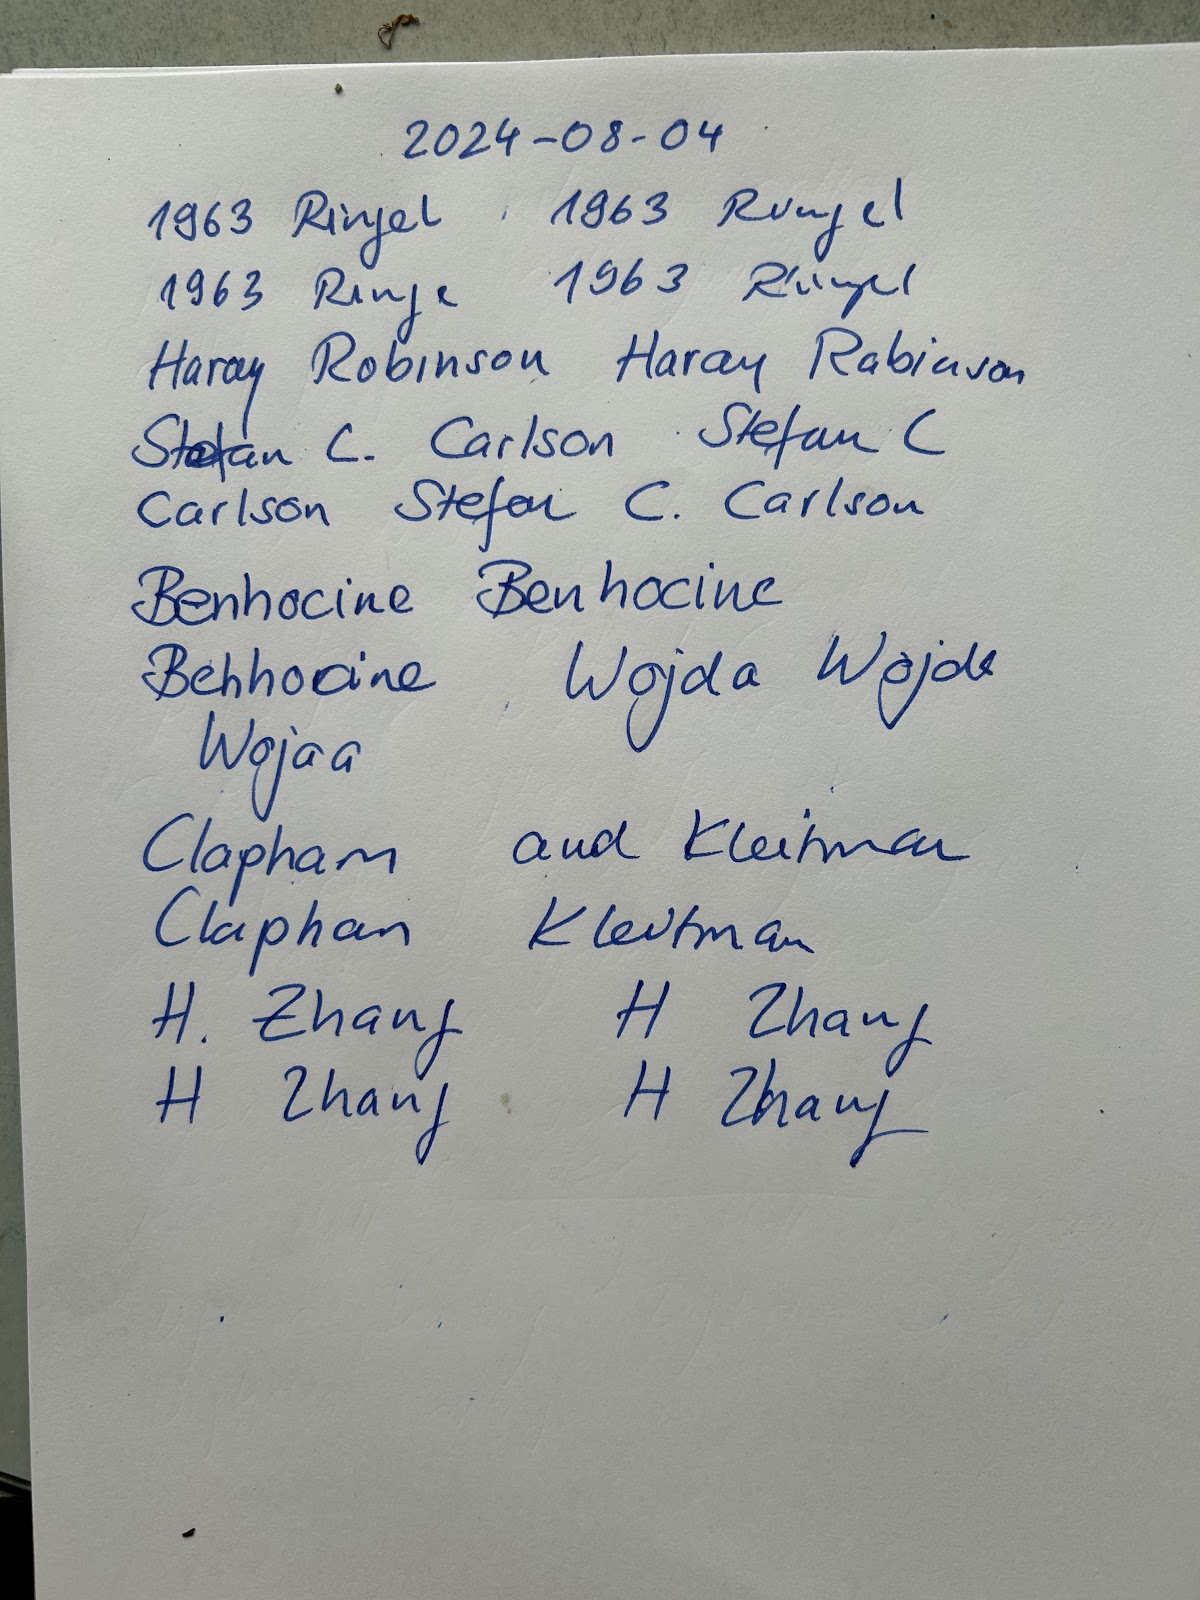 2024-08-04
1963 Ringel 1963 Rungel
1963 Ringe 1963 Ringel
Haray Robinson Haray Rabinson
Stefan C. Carlson Stefan C
Carlson Stefan C. Carlson
Benhocine Benhocine
Behhocine Wojda Wojda
Wojaa
Clapham and Kleitman
Claphan Kleitman
H. Zhang H Zhang
H Zhang H Zhang